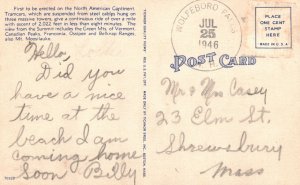 First to be erected on the North American Continent.
Tramcars, which are suspended from steel cables hung on
massive towers, give a continuous ride of over a mile
with ascent of 2,022 feet in less than eight minutes.
The view from the Summit includes the Green Mts. of Vermont,
Canadian Peaks, Franconia, Ossipee and Belknap Ranges,
also Mt. Monadnock.
JUL
25
1946
PLACE
ONE CENT
STAMP
HERE
MADE IN U.S.A.
POST CARD
Hello,
Did you
have a nice
time at the
beach I am
coming home
soon Billy
Mr & Mrs Casey
23 Elm St.
Shrewsbury
Mass